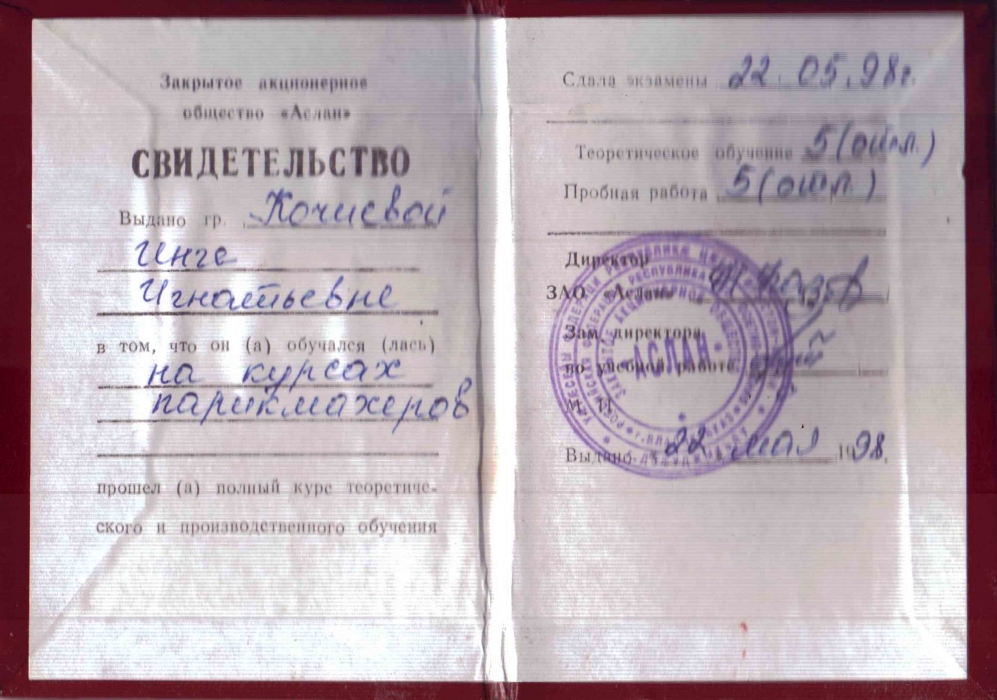 Закрытое акционерное
общество «Аслан»
СВИДЕТЕЛЬСТВО
Выдано гр. Кочиевой
Инге
Игнатьевне
в том, что он (а) обучался (лась)
на курсах
парикмахеров
прошел (а) полный курс теоретиче-
ского и производственного обучения
Сдала экзамены 22.05.98г.
Теоретическое обучение 5 (отл.)
Пробная работа 5 (отл.)
Директор
ЗАО «Аслан»
Зам. директора
по учебной работе
М. П.
АСЛАН
Выдано 22 мая 1998.